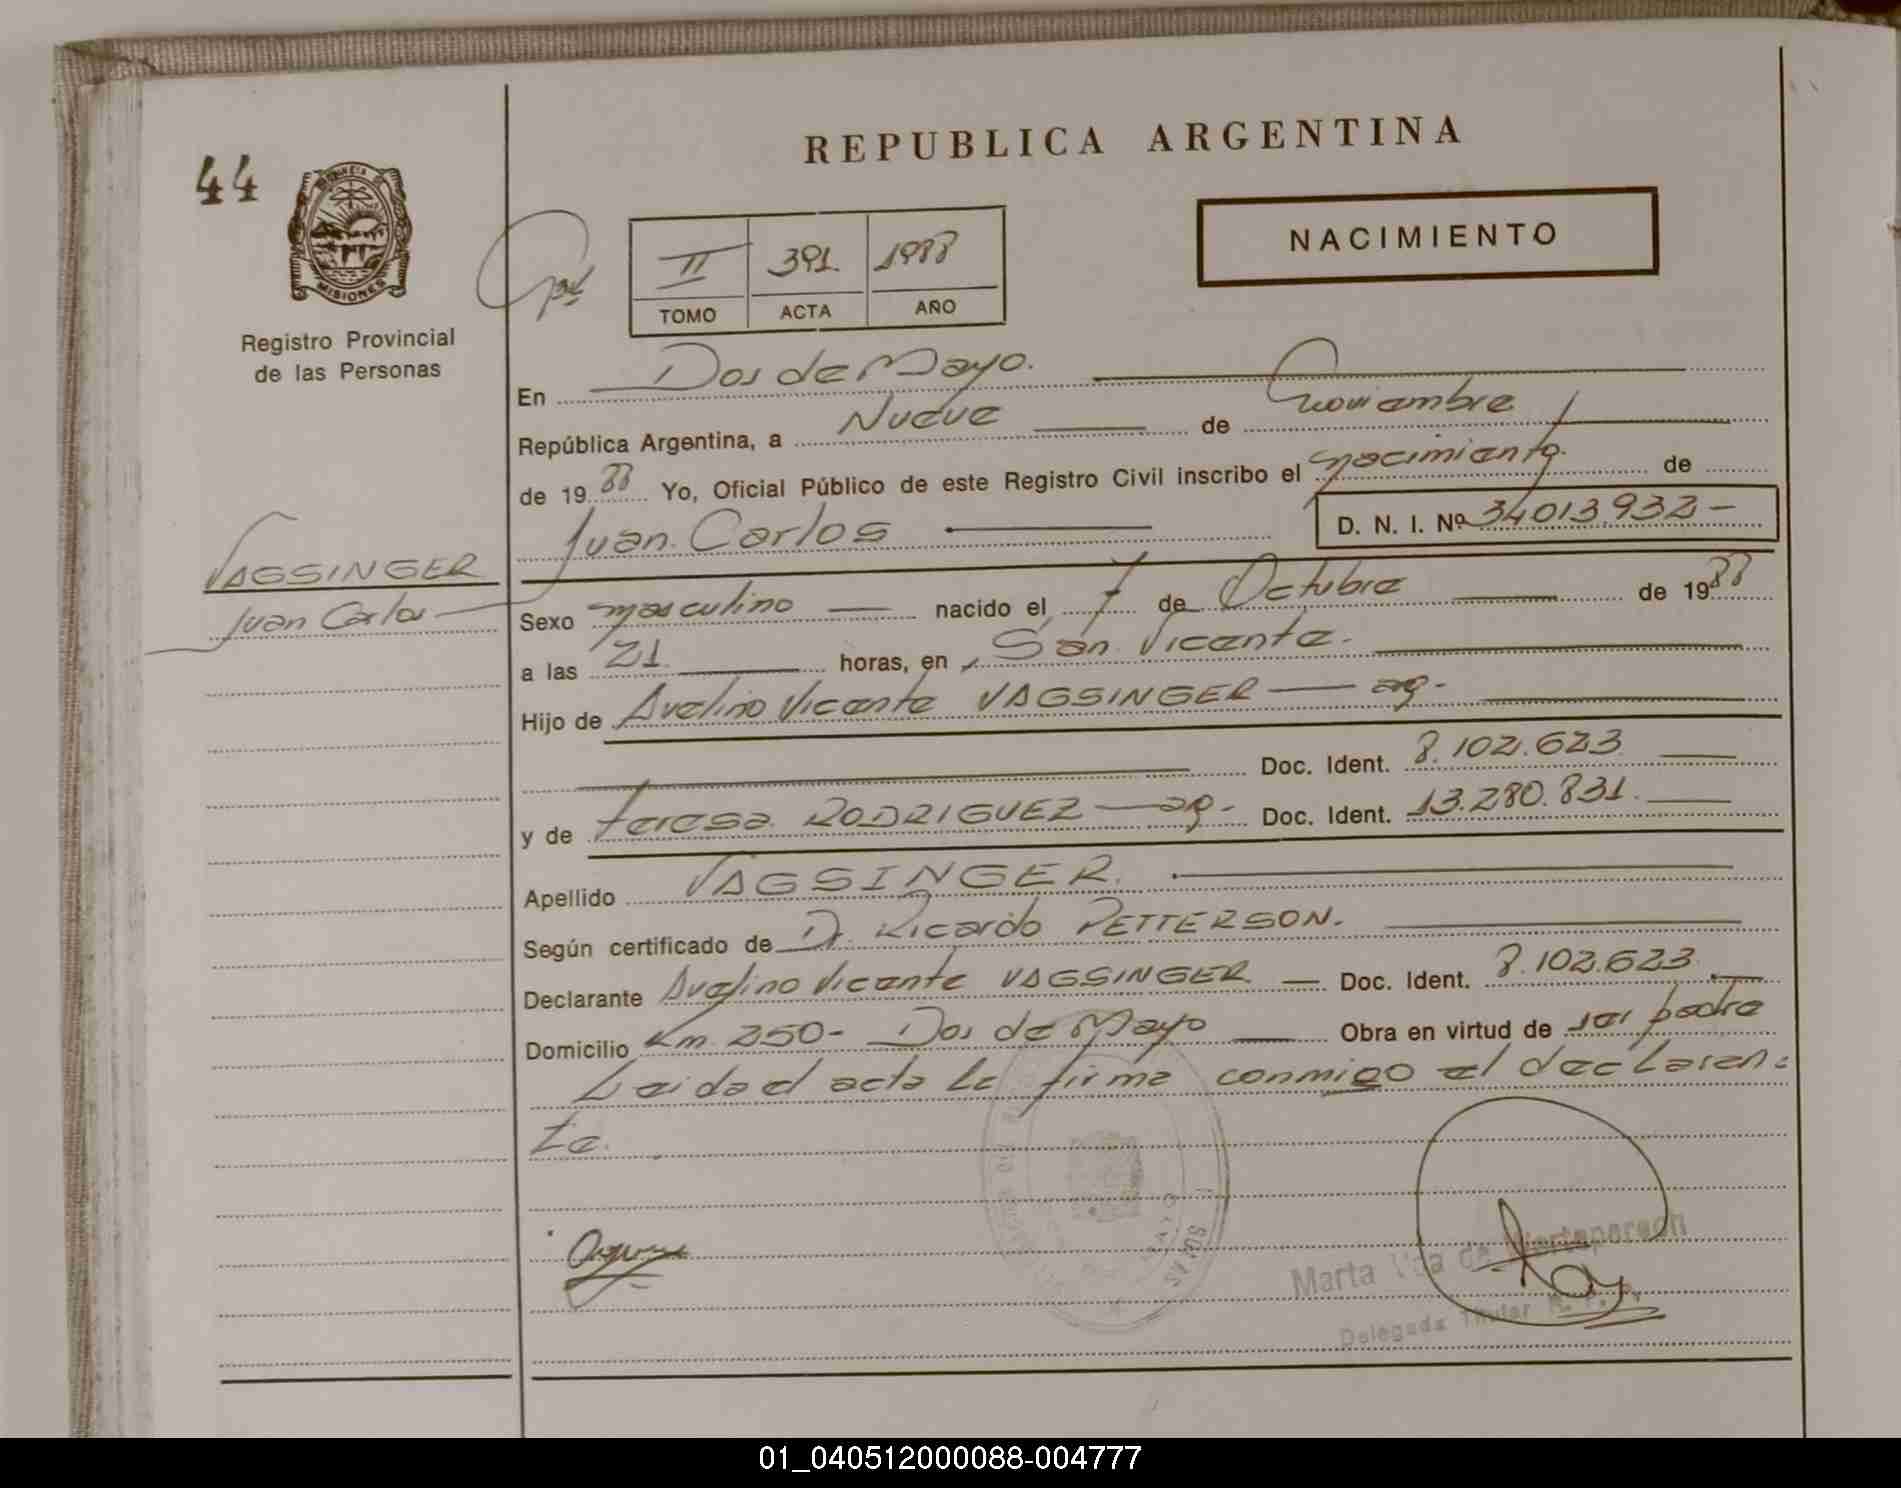 REPUBLICA ARGENTINA
44
MISIONES
Registro Provincial
de las Personas
II 391. 1988
TOMO ACTA AÑO
NACIMIENTO
En Dos de Mayo.
República Argentina, a Nueve de Noviembre
de 1988 Yo, Oficial Público de este Registro Civil inscribo el nacimiento. de
Juan Carlos D. N. I. Nº 34013.932-
VAGSINGER
Juan Carlos
Sexo masculino nacido el 7 de Octubre de 1988
a las 21. horas, en San Vicente.
Hijo de Avelino Vicente VAGSINGER — arg.
Doc. Ident. 8.102.623
y de Teresa RODRIGUEZ — arg. Doc. Ident. 13.280.831.
Apellido VAGSINGER.
Según certificado de Dr. Ricardo PETTERSON.
Declarante Avelino Vicente VAGSINGER — Doc. Ident. 8.102.623
Domicilio Km 250- Dos de Mayo Obra en virtud de ser padre
Leida el acta la firma conmigo el declaran=
te.
Marta de
Delegada Titular R. P. P.
01_040512000088-004777